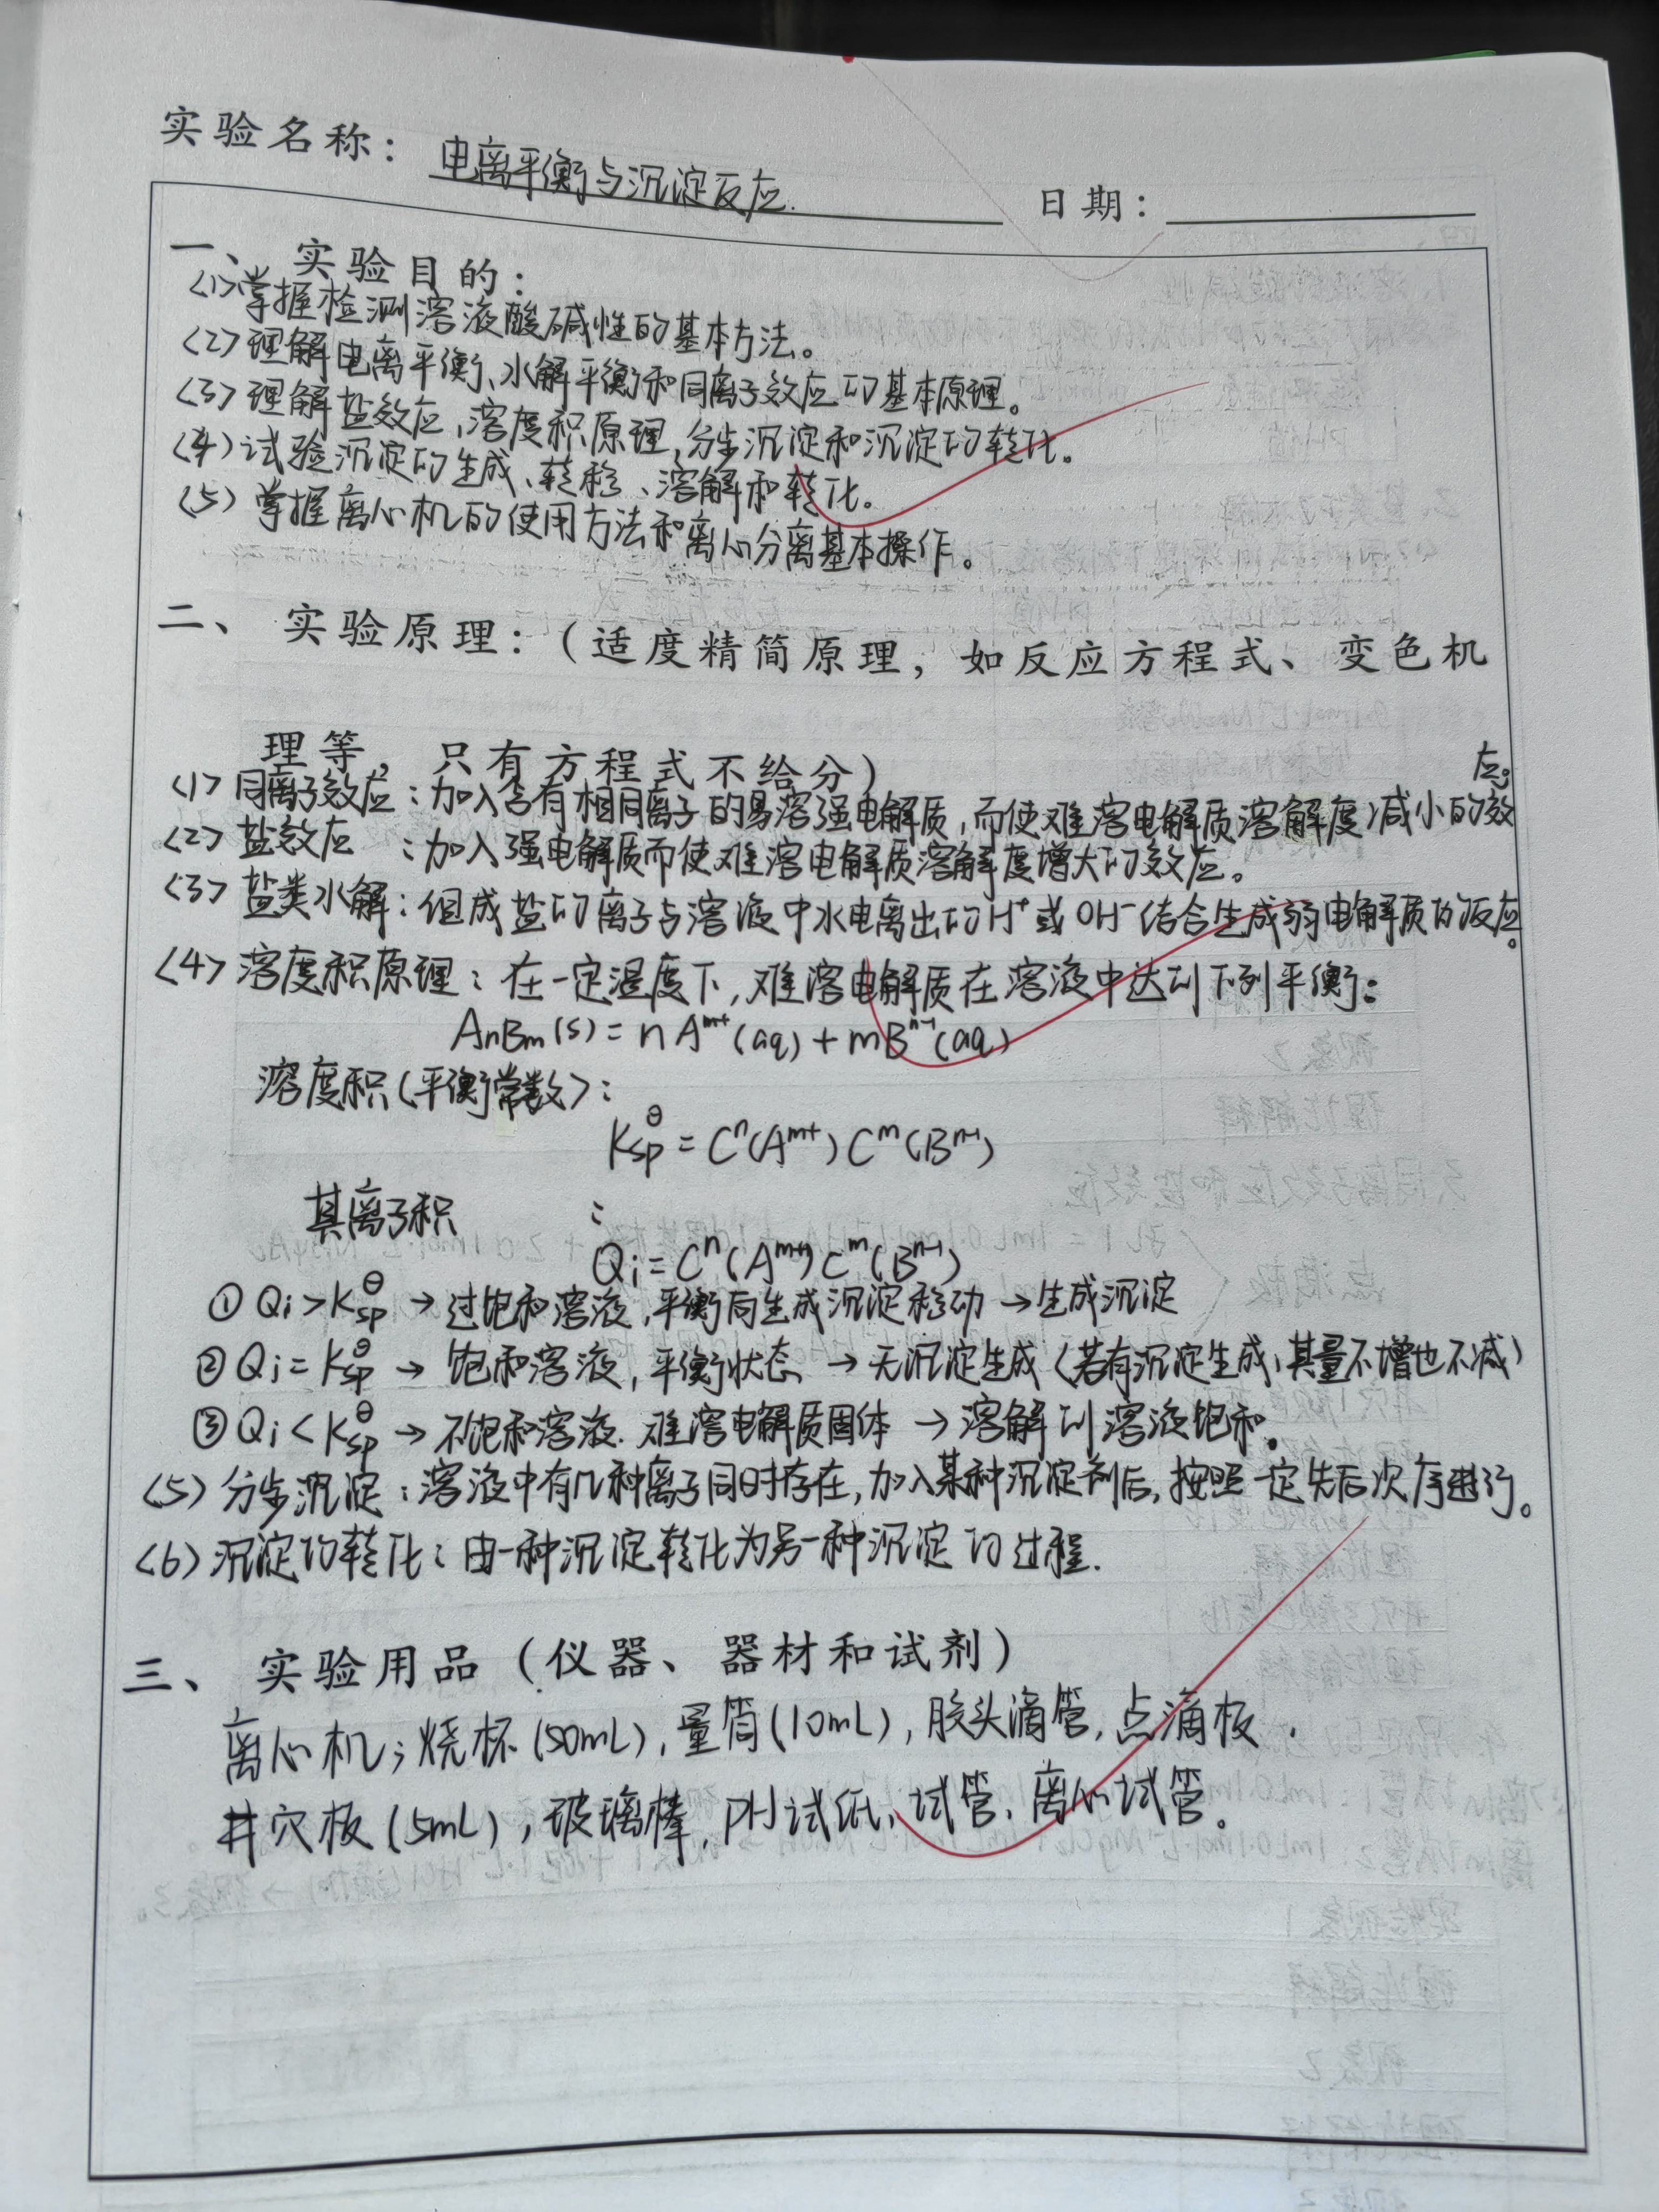 实验名称：电离平衡与沉淀反应.
日期：
一、 实验目的：
<1>掌握检测溶液酸碱性的基本方法。
<2>理解电离平衡、水解平衡和同离子效应的基本原理。
<3>理解盐效应,溶度积原理,分步沉淀和沉淀的转化。
<4>试验沉淀的生成、转移、溶解和转化。
<5>掌握离心机的使用方法和离心分离基本操作。
二、 实验原理：（适度精简原理，如反应方程式、变色机
理等，只有方程式不给分）
<1>同离子效应：加入含有相同离子的易溶强电解质,而使难溶电解质溶解度减小的效应;
<2>盐效应：加入强电解质而使难溶电解质溶解度增大的效应。
<3>盐类水解：组成盐的离子与溶液中水电离出的H⁺或OH⁻结合生成弱电解质的反应。
<4>溶度积原理：在一定温度下,难溶电解质在溶液中达到下列平衡：
AnBm(s)=nAᵐ⁺(aq)+mBⁿ⁻(aq)
溶度积(平衡常数)：
Ksp^θ=Cⁿ(Aᵐ⁺)Cᵐ(Bⁿ⁻)
其离子积：
Qi=Cⁿ(Aᵐ⁺)Cᵐ(Bⁿ⁻)
①Qi>Ksp^θ→过饱和溶液,平衡向生成沉淀移动→生成沉淀
②Qi=Ksp^θ→饱和溶液,平衡状态→无沉淀生成(若有沉淀生成,其量不增也不减)
③Qi<Ksp^θ→不饱和溶液.难溶电解质固体→溶解到溶液饱和。
<5>分步沉淀：溶液中有几种离子同时存在,加入某种沉淀剂后,按照一定先后次序进行。
<6>沉淀的转化：由一种沉淀转化为另一种沉淀的过程.
三、 实验用品（仪器、器材和试剂）
离心机;烧杯(50mL),量筒(10mL),胶头滴管,点滴板.
井穴板(5mL),玻璃棒,PH试纸,试管,离心试管。